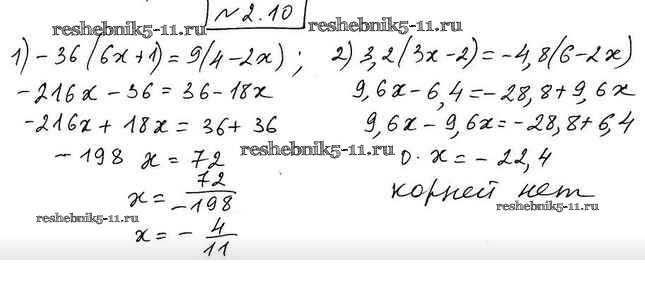 №2.10
reshebnik5-11.ru reshebnik5-11.ru
1) -36(6x+1)=9(4-2x); 2) 3,2(3x-2)=-4,8(6-2x)
-216x-36=36-18x 9,6x-6,4=-28,8+9,6x
-216x+18x=36+36 9,6x-9,6x=-28,8+6,4
-198 x=72 reshebnik5-11.ru 0·x=-22,4
x=72/-198 корней нет
reshebnik5-11.ru reshebnik5-11.ru
x=-4/11